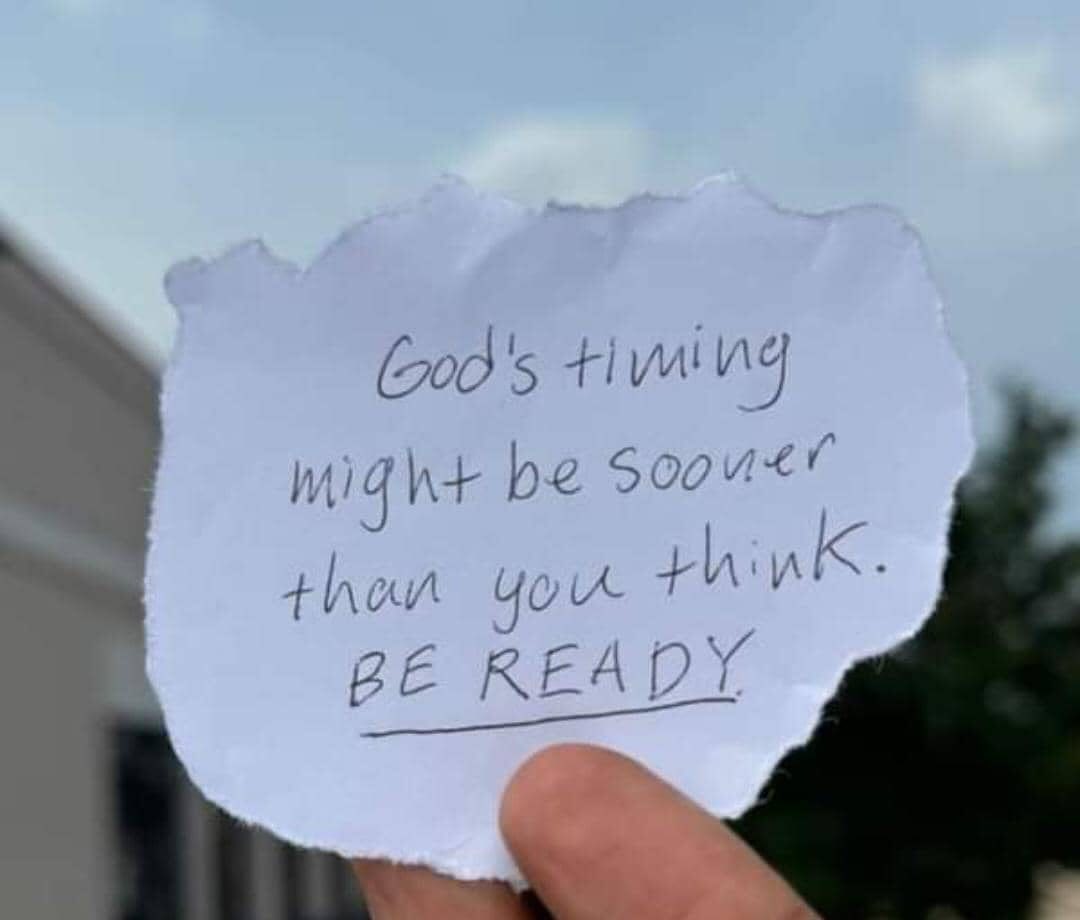 God's timing
might be sooner
than you think.
BE READY.